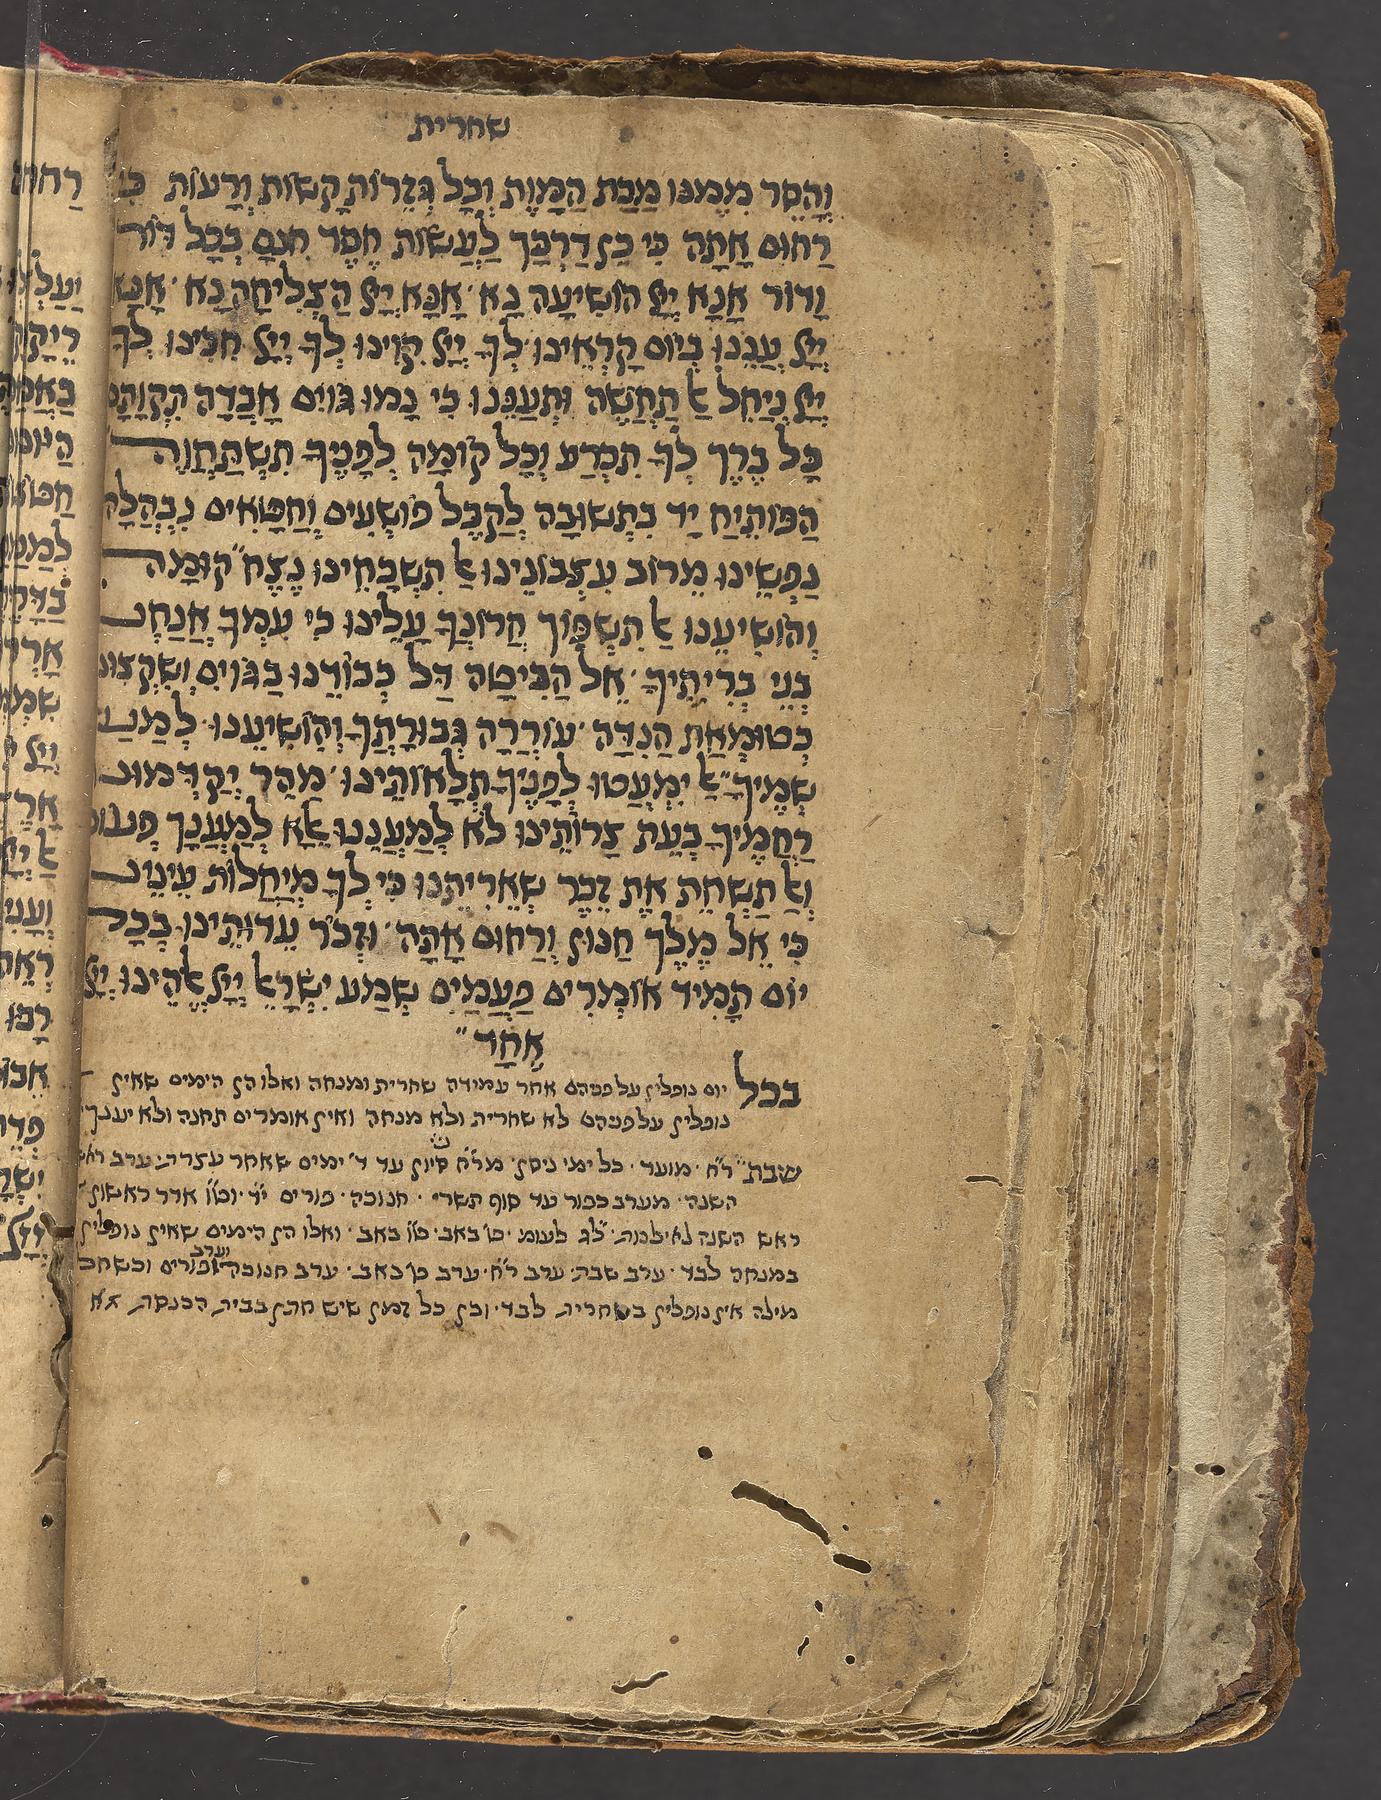 שחרית
וְהָסֵר מִמֶּנּוּ מַכַּת הַמָּוֶת וְכָל גְּזֵרוֹת קָשׁוֹת וְרָעוֹת כִּי
רַחוּם אַתָּה כִּי כֵן דַרְכָּךְ לַעֲשׂוֹת חֶסֶד חִנָּם בְּכָל דּוֹר
וָדוֹר אָנָא יְיָ הוֹשִׁיעָה נָא אָנָּא יְיָ הַצְלִיחָה נָא אָנָּא
יְיָ עֲנֵנוּ בְיוֹם קָרְאֵינוּ לְךָ יְיָ קִוִּינוּ לְךָ יְיָ חִכִּינוּ לְךָ
יְיָ נְיַחֵל אַל תֶּחֱשֶׁה וּתְעַנֵּנוּ כִּי נָמוּ גוֹיִם אָבְדָה תִקְוָתָם
כָּל בֶּרֶךְ לְךָ תִכְרַע וְכָל קוֹמָה לְפָנֶיךָ תִשְׁתַּחֲוֶה
הַפּוֹתֵיחַ יָד בִּתְשׁוּבָה לְקַבֵּל פּוֹשְׁעִים וְחַטָּאִים נִבְהֲלָה
נַפְשֵׁינוּ מֵרוֹב עִצְבוֹנֵינוּ אַל תִּשְׁכָּחֵינוּ נֶצַח קוּמָה
וְהוֹשִׁיעֵנוּ אַל תִּשְׁפּוֹךְ חֲרוֹנְךָ עָלֵינוּ כִּי עַמְּךָ אֲנַחְנ
בְּנֵי בְרִיתֶיךָ אֵל הַבִּיטָה דַּל כְּבוֹדֵנוּ בַּגּוֹיִם וְשִׁקְּצוּנוּ
כְּטוּמְאַת הַנִּדָּה עוֹרְרָה גְּבוּרָתְךָ וְהוֹשִׁיעֵנוּ לְמַעַ
שְׁמֶיךָ אַל יִמְעֲטוּ לְפָנֶיךָ תְּלָאוֹתֵינוּ מַהֵר יְקַדְּמוּנ
רַחֲמֶיךָ בְּעֵת צָרוֹתֵינוּ לֹא לְמַעֲנֵנוּ אֶלָּא לְמַעֲנָךְ פְּעוֹל
וְאַל תַּשְׁחֵת אֶת זֵכֶר שְׁאֵרִיתֵנוּ כִּי לְךָ מְיַחֲלוֹת עֵינֵינ
כִּי אֵל מֶלֶךְ חַנּוּן וְרַחוּם אַתָּה וּזְכֹר עֵדוּתֵינוּ בְּכָל
יוֹם תָּמִיד אוֹמְרִים פַּעֲמַיִם שְׁמַע יִשְׂרָאֵל יְיָ אֱלֹהֵינוּ יְיָ
אֶחָד
בכל יום נופלין על פניהם אחר עמידה שחרית ומנחה ואלו הן הימים שאין
נופלין על פניהם לא שחרית ולא מנחה ואין אומרים תחנה ולא יענך
שבת ר"ח מועד כל ימי ניסן מר"ח סיון עד ד' ימים שאחר עצרת ערב ראש
השנה מערב כפור עד סוף תשרי חנוכה פורים י"ד וט"ו אדר ראשון
ראש השנה לאילנות ל"ג לעומר ט' באב ט"ו באב ואלו הן הימים שאין נופלין
במנחה לבד ערב שבת ערב ר"ח ערב ט' באב ערב חנוכה וערב פורים וכשחל
מילה אין נופלין בשחרית לבד וכן כל זמן שיש חתן בבית הכנסת